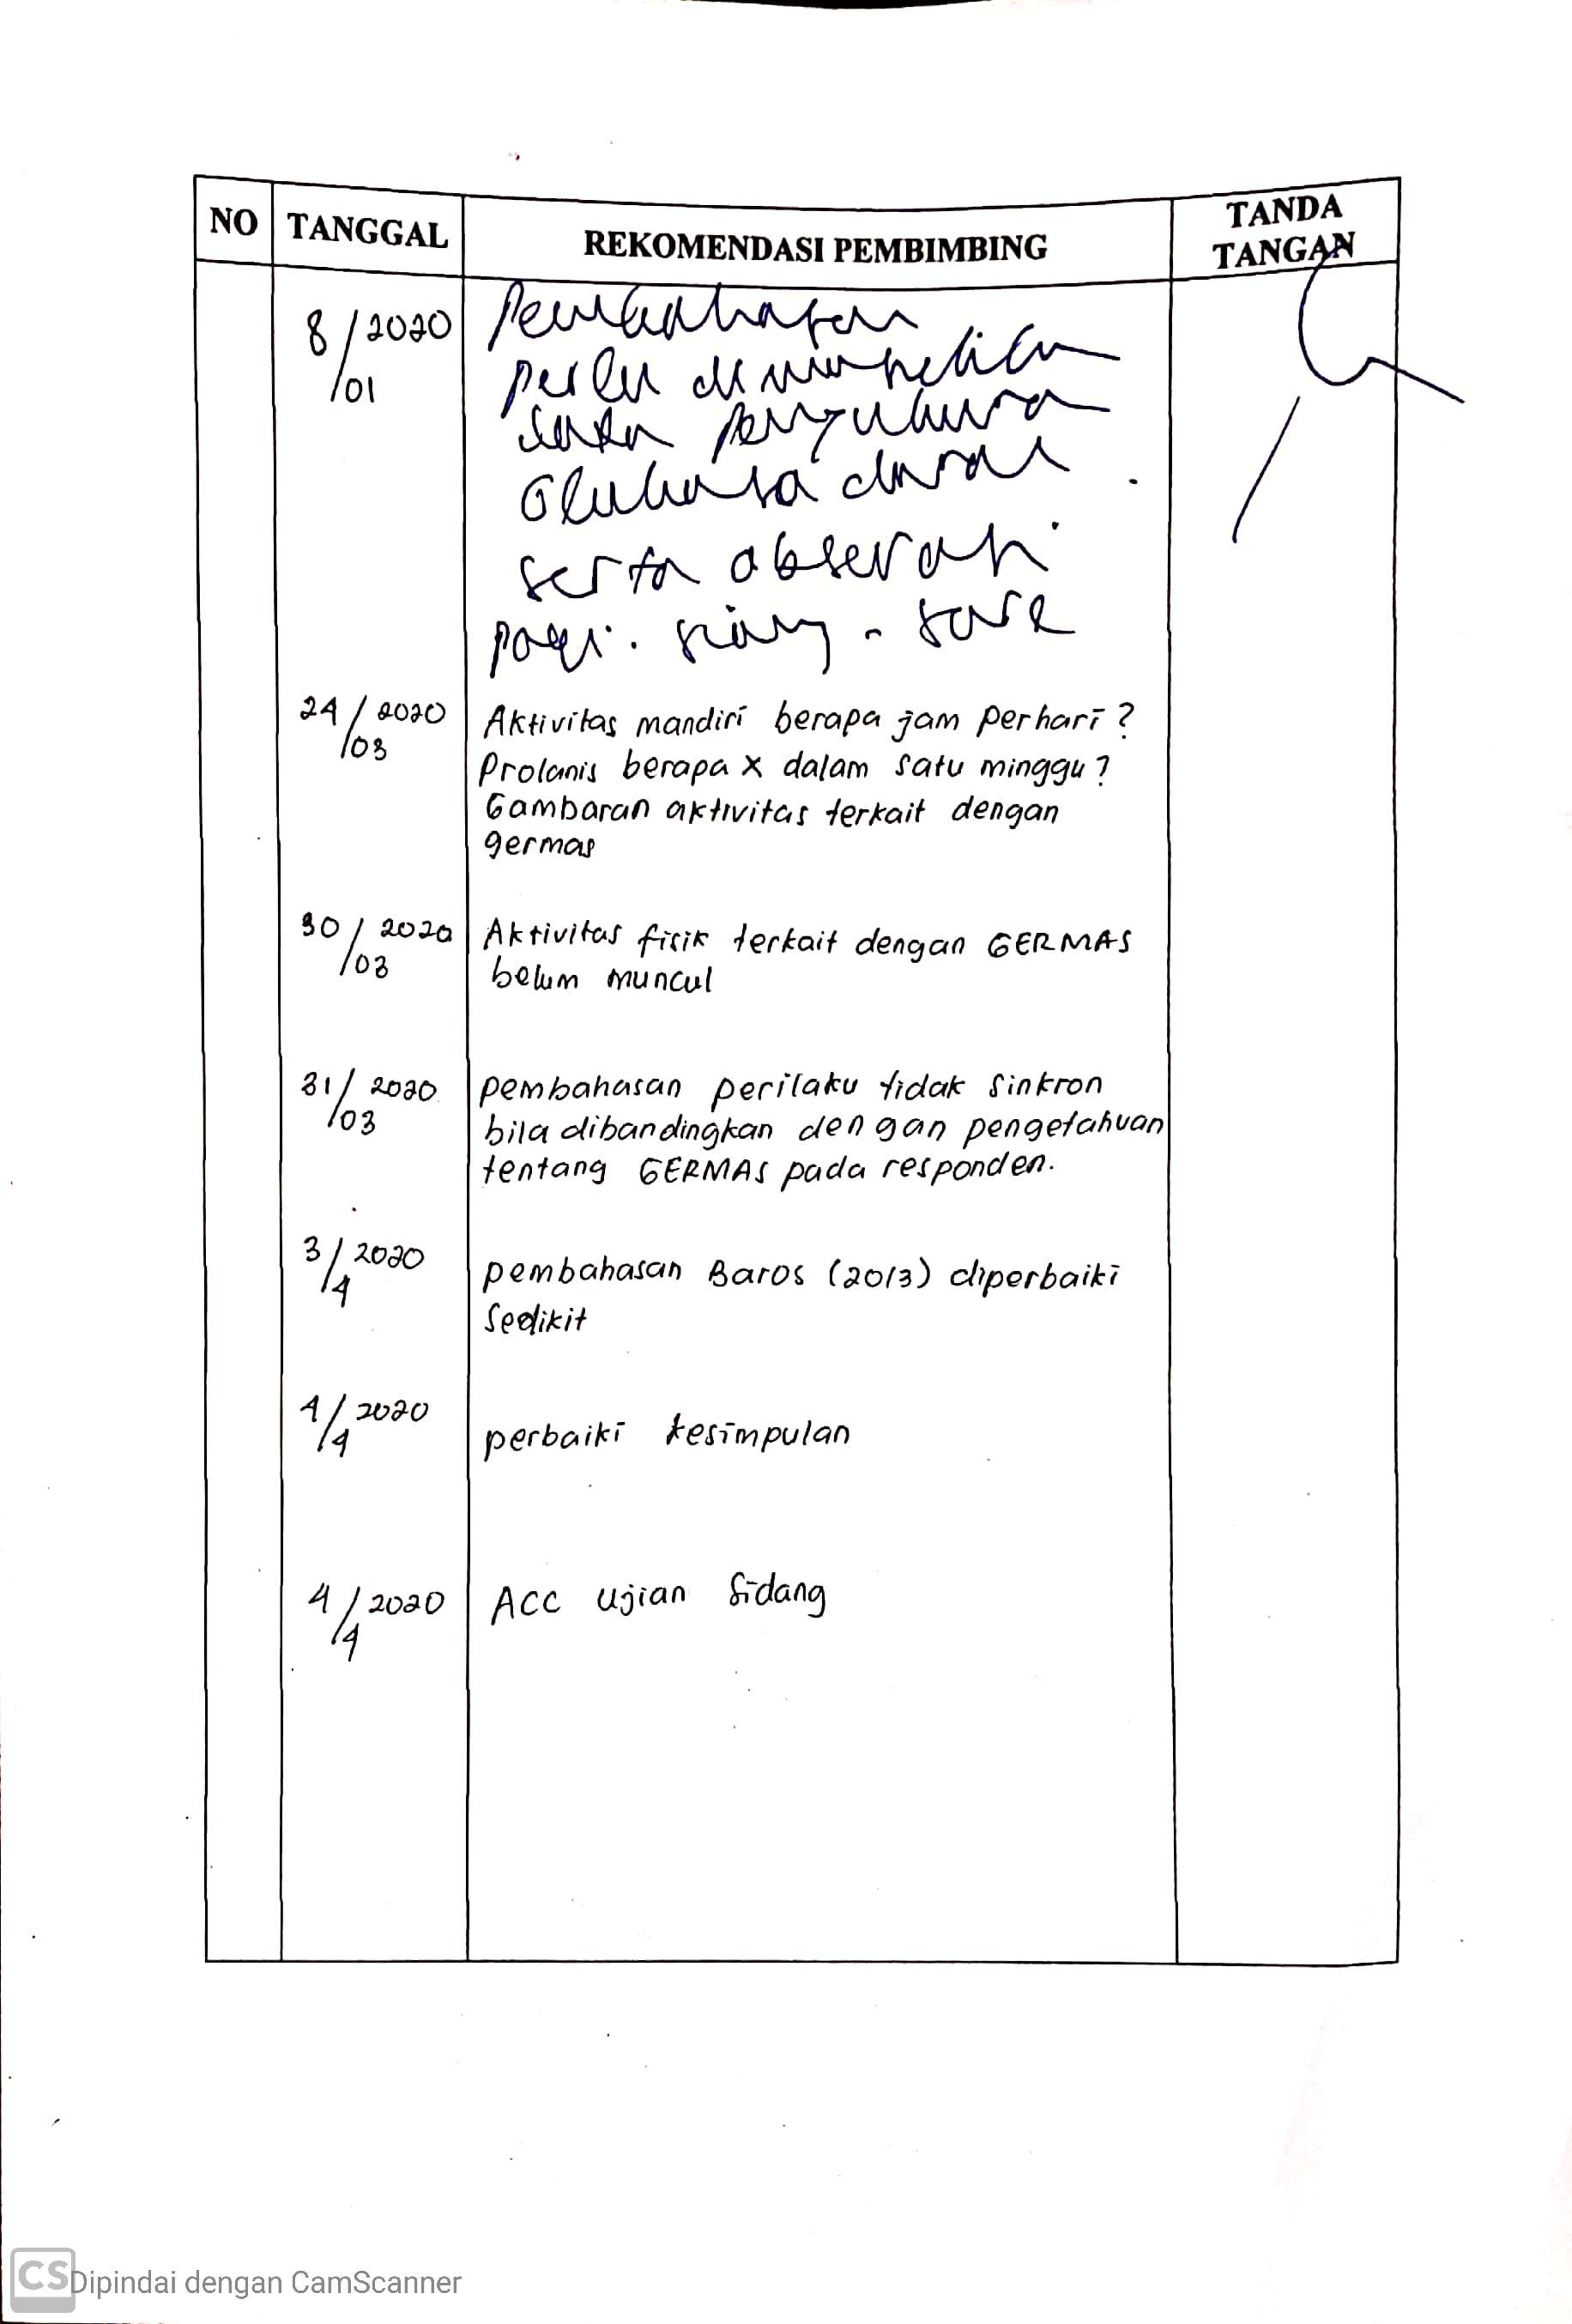 NO TANGGAL REKOMENDASI PEMBIMBING TANDA TANGAN
8/01 2020 Pembahasan
perlu
data
Glukosa darah
serta observasi
pagi. siang - sore
24/03 2020 Aktivitas mandiri berapa jam perhari?
Prolanis berapa x dalam satu minggu?
Gambaran aktivitas terkait dengan
germas
30/03 2020 Aktivitas fisik terkait dengan GERMAS
belum muncul
31/03 2020 pembahasan perilaku tidak sinkron
bila dibandingkan dengan pengetahuan
tentang GERMAS pada responden.
3/4 2020 pembahasan Baros (2013) diperbaiki
sedikit
4/4 2020 perbaiki kesimpulan
4/4 2020 ACC ujian sidang
CS Dipindai dengan CamScanner